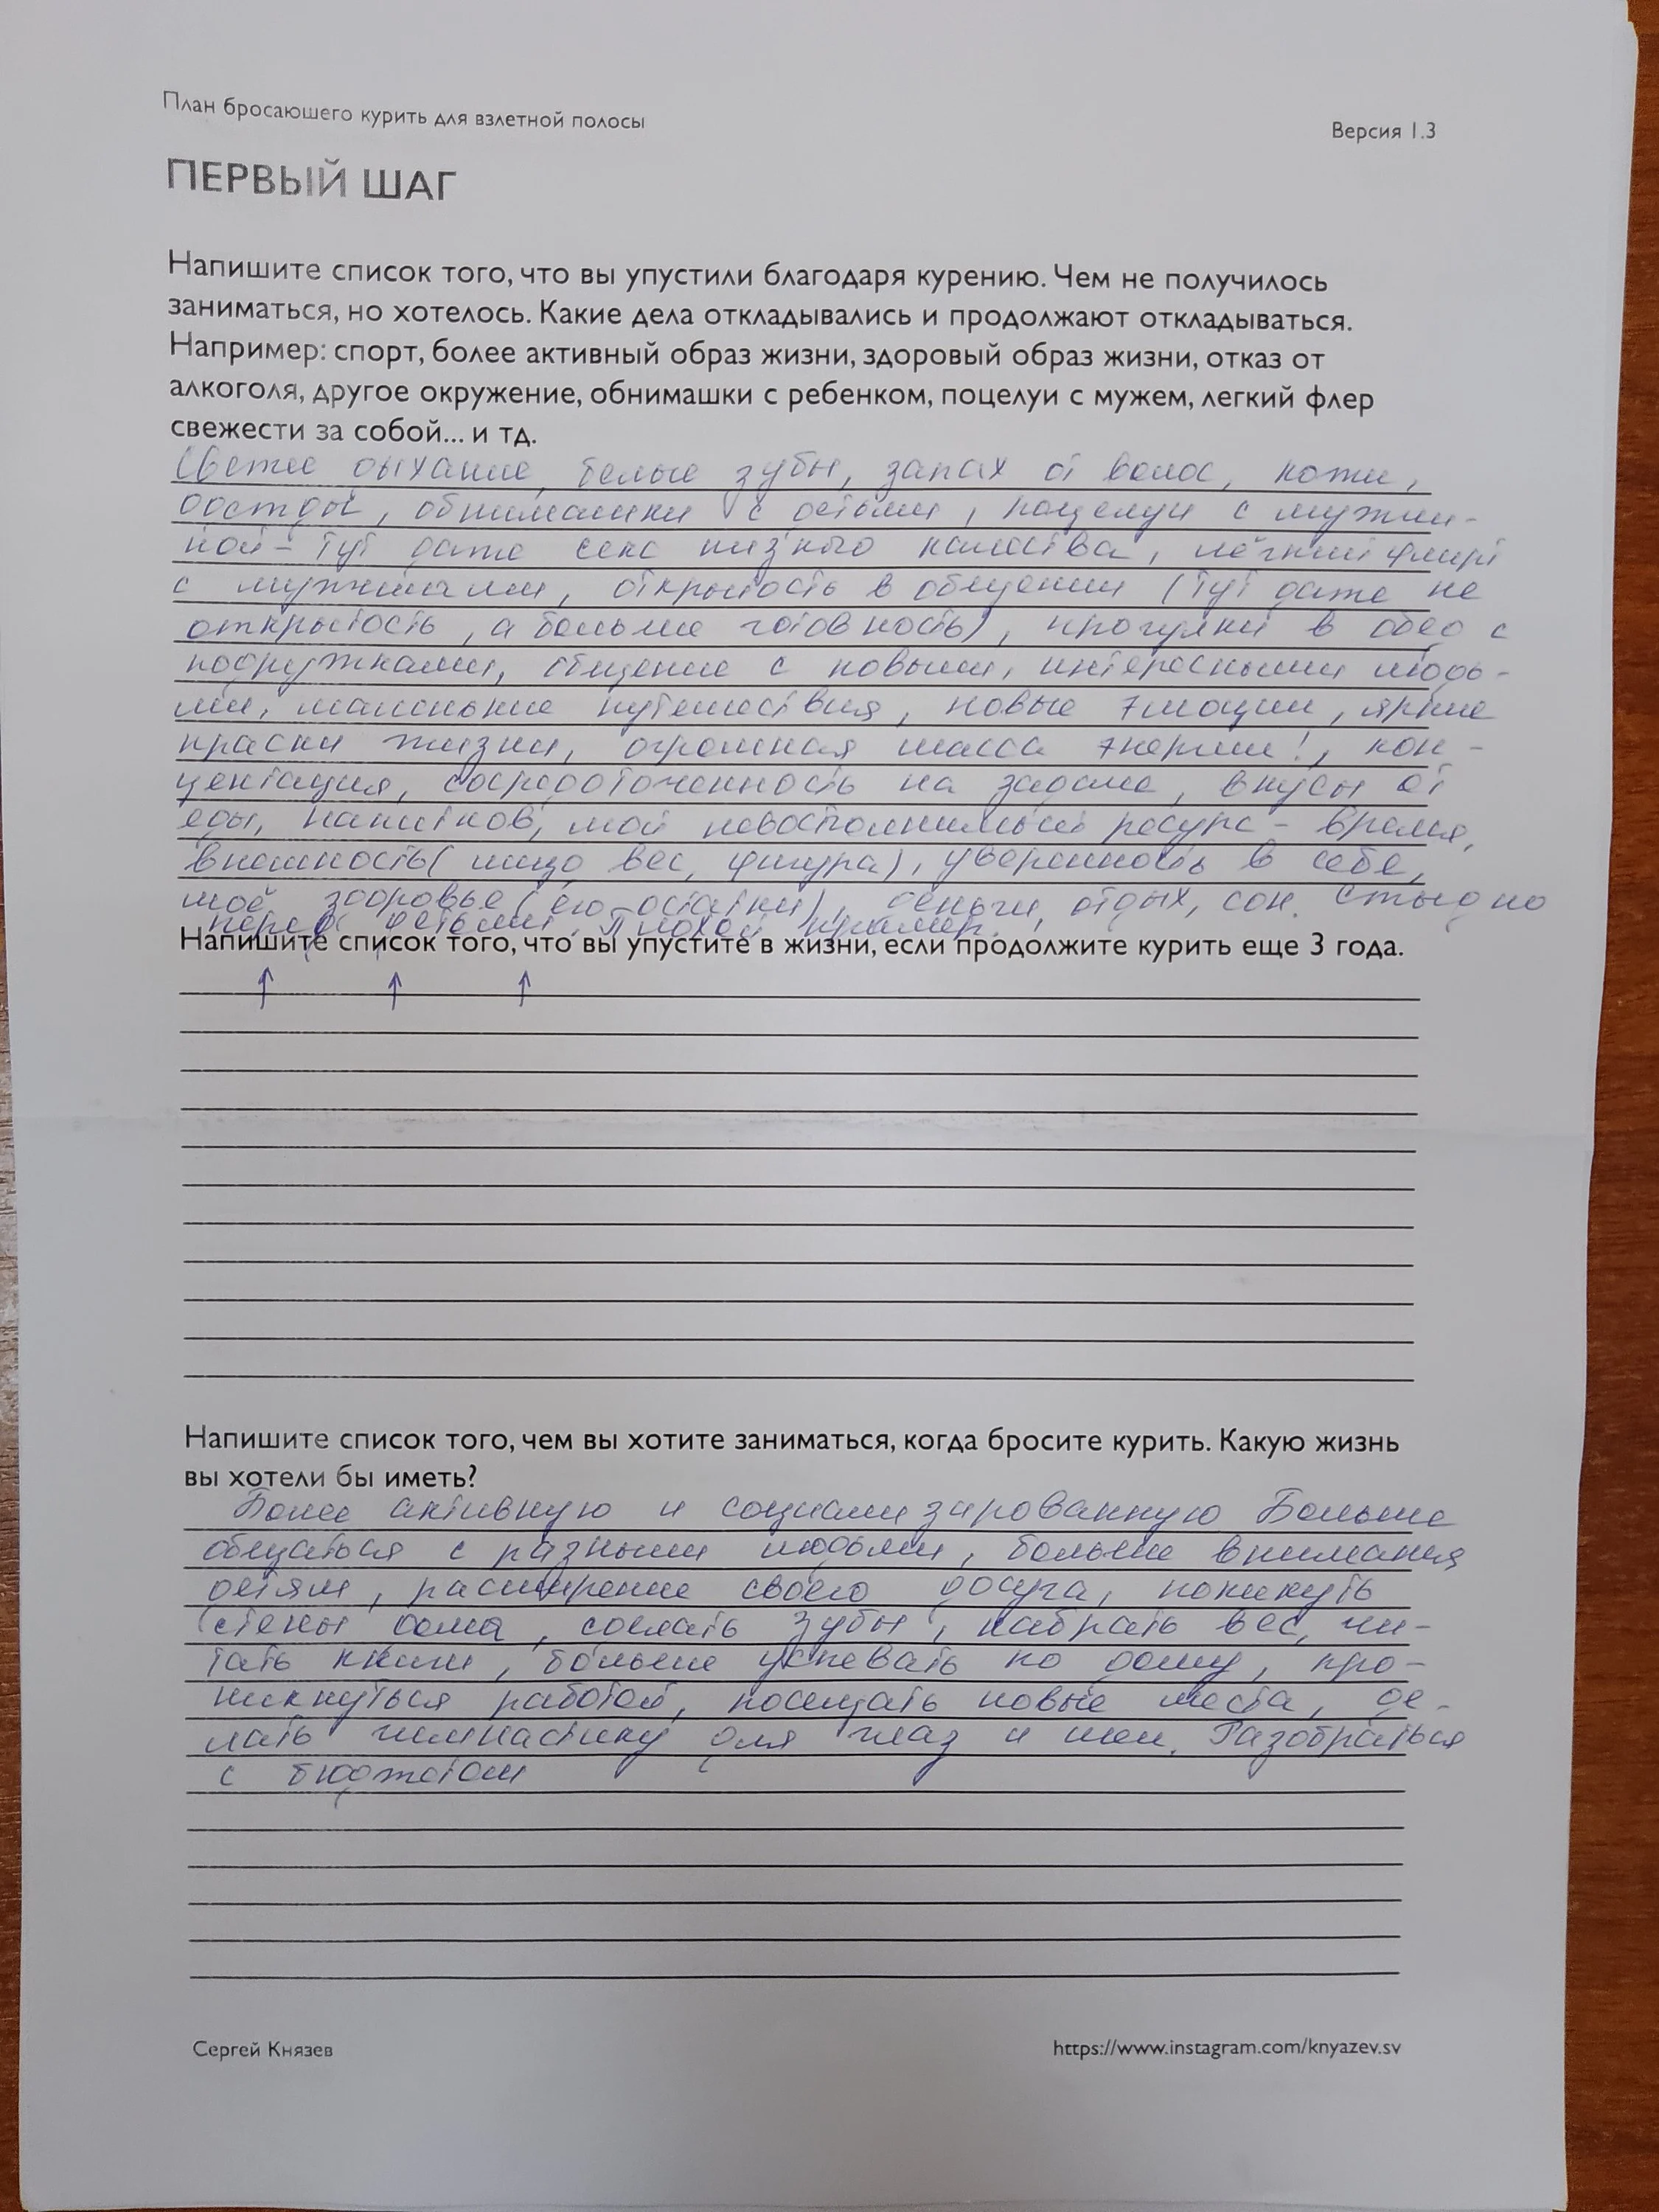 План бросаюшего курить для взлетной полосы
Версия 1.3
ПЕРВЫЙ ШАГ
Напишите список того, что вы упустили благодаря курению. Чем не получилось
заниматься, но хотелось. Какие дела откладывались и продолжают откладываться.
Например: спорт, более активный образ жизни, здоровый образ жизни, отказ от
алкоголя, другое окружение, обнимашки с ребенком, поцелуи с мужем, легкий флер
свежести за собой... и тд.
Свежее дыхание, белые зубы, запах от волос, кожи,
одежды, обнимашки с детьми, поцелуи с мужчи-
ной - тут даже секс низкого качества, лёгкий флирт
с мужчинами, открытость в общении (тут даже не
открытость, а больше готовность), прогулки в обед с
подружками, общение с новыми, интересными людь-
ми, маленькие путешествия, новые эмоции, яркие
краски жизни, огромная масса энергии!, кон-
центация, сосредоточенность на задаче, вкусы от
еды, напитков, мой невосполнимый ресурс - время,
внешность (лицо вес, фигура), уверенность в себе,
моё здоровье (его остатки), деньги, отдых, сон. Стыдно
перед детьми. Плохой пример.
Напишите список того, что вы упустите в жизни, если продолжите курить еще 3 года.
↑ ↑ ↑
Напишите список того, чем вы хотите заниматься, когда бросите курить. Какую жизнь
вы хотели бы иметь?
Более активную и социализированную Больше
общаться с разными людьми, больше внимания
детям, расширение своего досуга, покинуть
стены дома, сделать зубы, набрать вес, чи-
тать книги, больше успевать по дому, про-
никнуться работой, посещать новые места, де-
лать гимнастику для глаз и шеи. Разобраться
с бюджетом
Сергей Князев
https://www.instagram.com/knyazev.sv